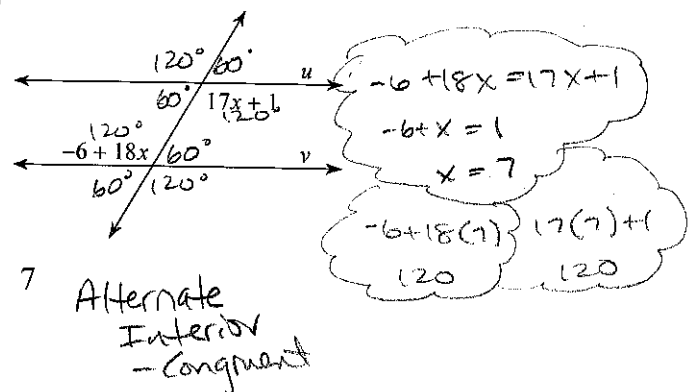 120° 60°
u
60° 17x + 1
120
120°
-6 + 18x 60°
v
60° 120°
-6 + 18x = 17x + 1
-6 + x = 1
x = 7
-6 + 18(7)
120
17(7) + 1
120
7
Alternate
Interior
- Congruent